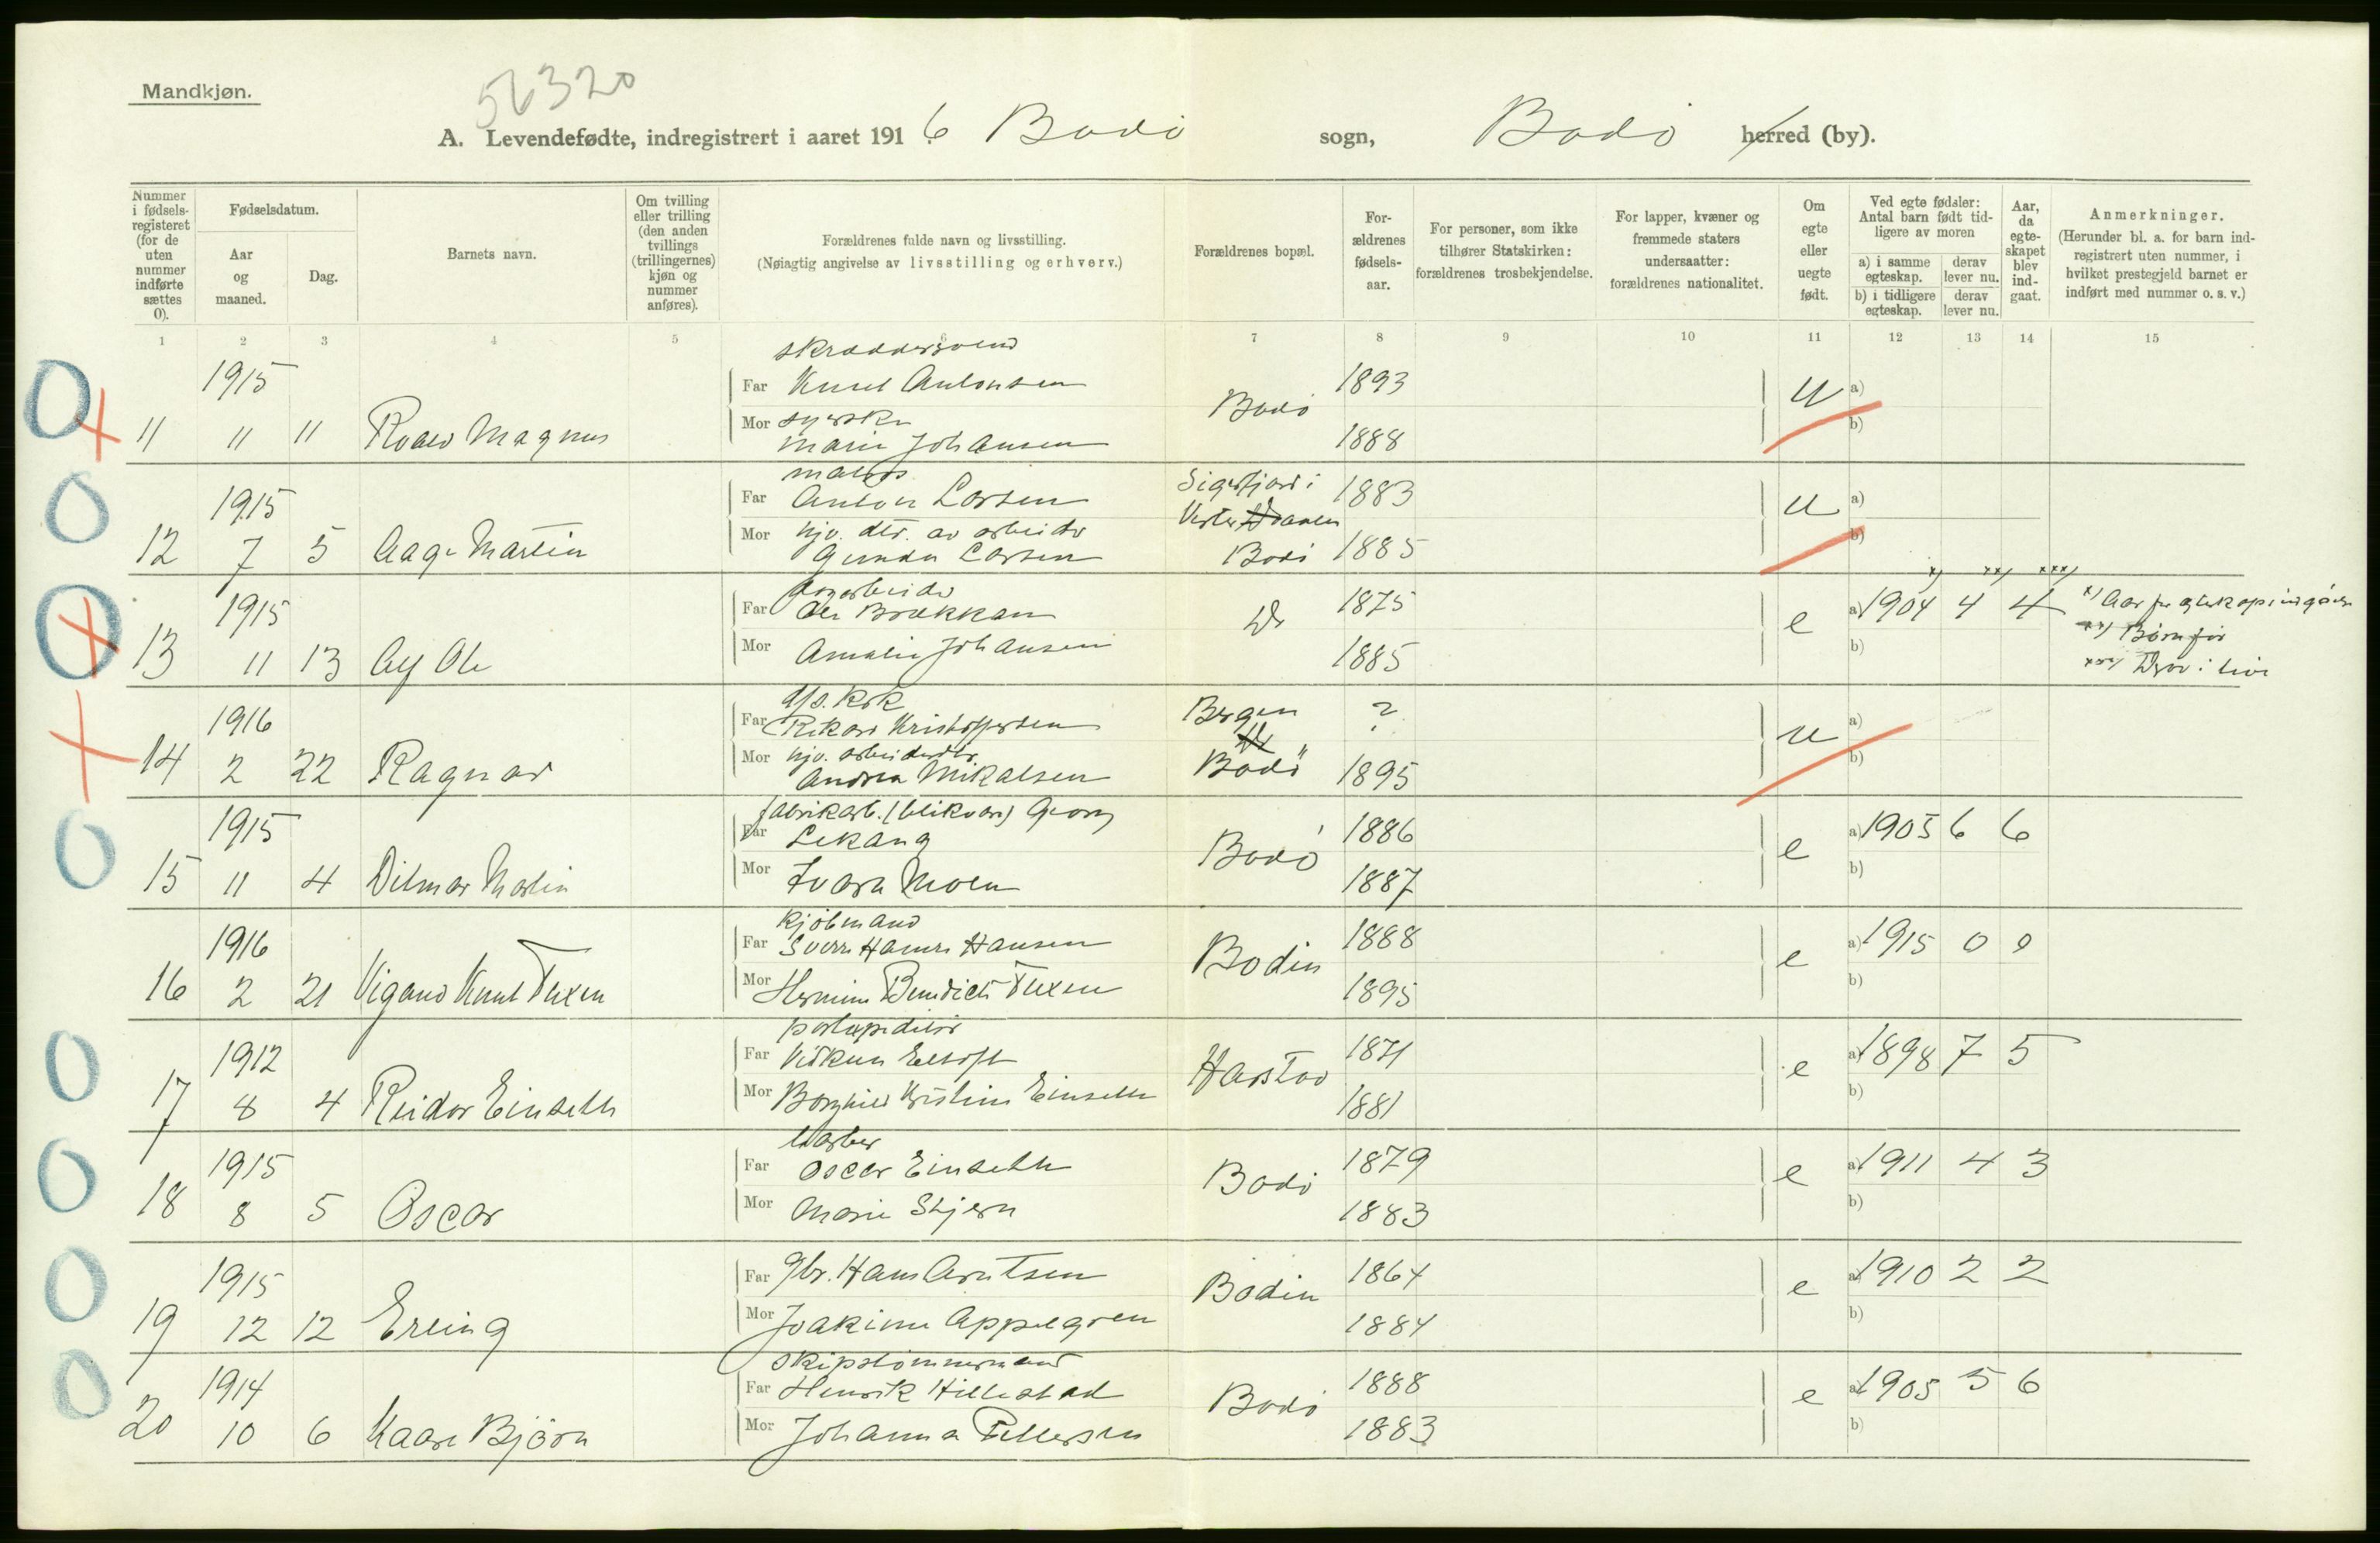 Mandkjøn.
56320
A. Levendefødte, indregistrert i aaret 1916. Bodø sogn, Bodø herred (by).
Nummer i fødsels-registeret (for de uten nummer indførte sættes 0).
Fødselsdatum.
Aar og maaned.
Dag.
Barnets navn.
Om tvilling eller trilling (den anden tvillings (trillingernes) kjøn og nummer anføres).
Forældrenes fulde navn og livsstilling.
(Nøiagtig angivelse av livsstilling og erhverv.)
Forældrenes bopæl.
For-ældrenes fødsels-aar.
For personer, som ikke tilhører Statskirken: forældrenes trosbekjendelse.
For lapper, kvæner og fremmede staters undersaatter: forældrenes nationalitet.
Om egte eller uegte født.
Ved egte fødsler: Antal barn født tid-ligere av moren
a) i samme egteskap. derav lever nu.
b) i tidligere egteskap. derav lever nu.
Aar, da egte-skapet blev ind-gaat.
Anmerkninger.
(Herunder bl. a. for barn ind-registrert uten nummer, i hvilket prestegjeld barnet er indført med nummer o. s. v.)
1 2 3 4 5 6 7 8 9 10 11 12 13 14 15
skræddersvend
1915 Far Knut Antonsen 1893 a)
11 11 11 Roald Magnus Bodø u
Mor syerske b)
Marie Johansen 1888
matros Sigerfjord i
1915 Far Anton Larsen 1883 a)
12 7 5 Aage Martin u
Mor hjv. dtr. av arbeider b)
Gunda Larsen Bodø 1885
x) xx) xxx)
1915 Far Ole Brækkan 1875 a) 1904 4 4
13 11 13 Alf Ole e
Mor Amalie Johansen 1885 b)
xx) Børn før
xxx) Derav i live
d/s. kok
1916 Far Rikard Kristoffersen Bergen ? a)
14 2 22 Ragnar u
Mor hjv. arbeiderdtr. b)
Andrea Mikalsen Bodø 1895
fabrikarb. (blikvar) Georg
1915 Far Lekang 1886 a) 1905 6 6
15 11 4 Dilmar Martin Bodø e
Mor Ivara Moen 1887 b)
kjøbmand
1916 Far Sverre Hamre Hansen 1888 a) 1915 0 0
16 2 21 Vigand Knut Tuxen Bodin e
Mor Hermine Benedicte Tuxen 1895 b)
postexpeditør
1912 Far Vidkun Eltoft 1871 a) 1898 7 5
17 8 4 Reidar Einseth Harstad e
Mor Borghild Kristine Einseth 1881 b)
barber
1915 Far Oscar Einseth 1879 a) 1911 4 3
18 8 5 Oscar Bodø e
Mor Marie Stjern 1883 b)
1915 Far gbr. Hans Arntsen 1864 a) 1910 2 2
19 12 12 Erling Bodin e
Mor Joakime Appelgren 1884 b)
skipstømmermand
1914 Far Henrik Hillestad 1888 a) 1905 5 6
20 10 6 Kaare Bjørn Bodø e
Mor Johanna Pettersen 1883 b)